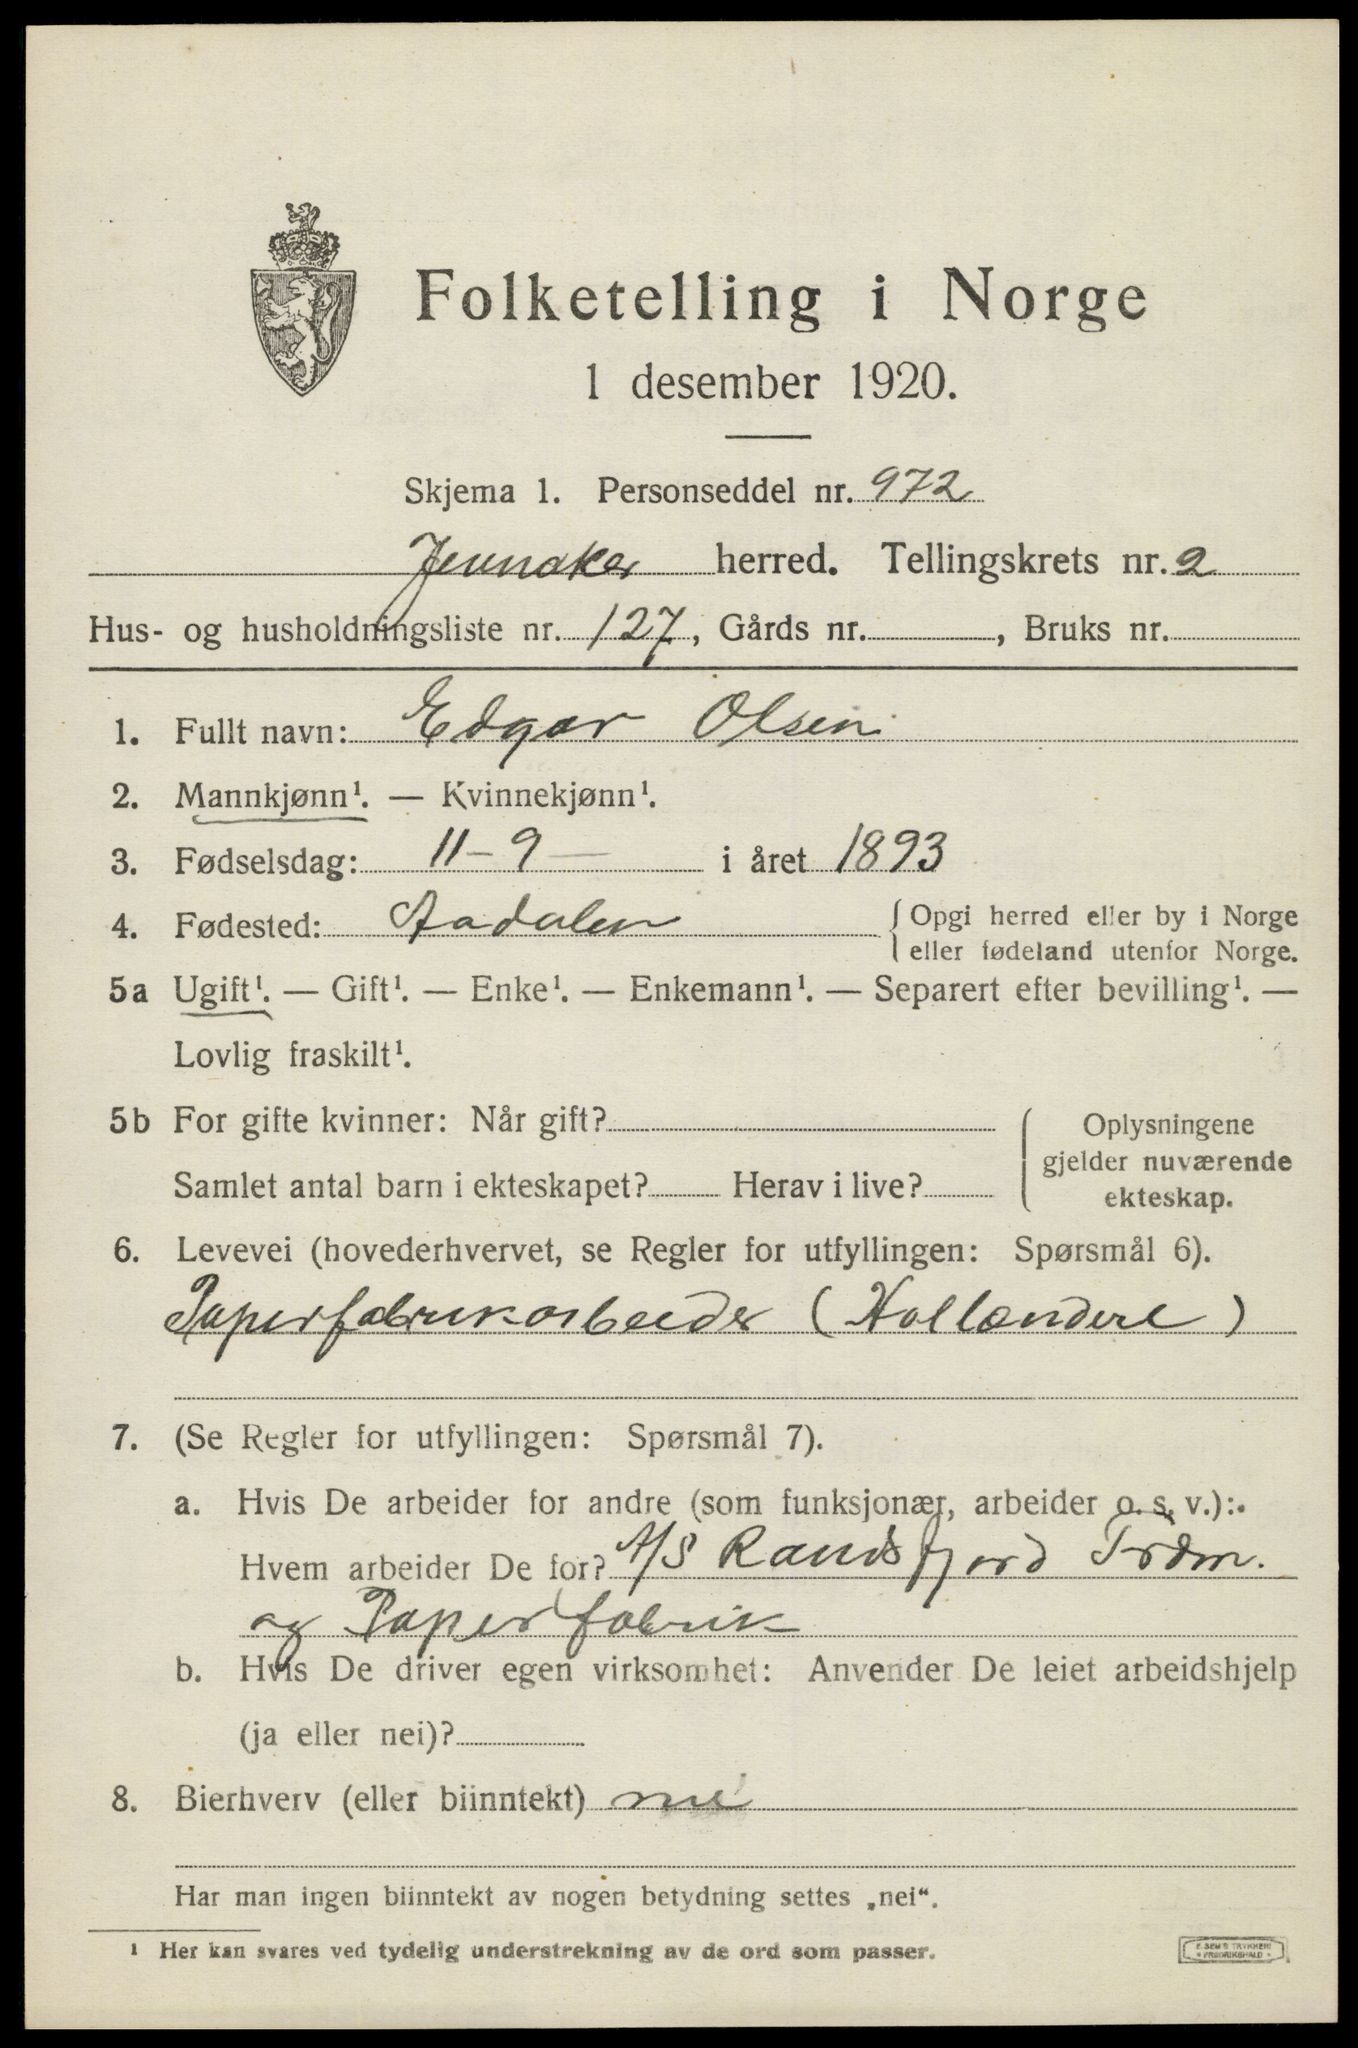 Folketelling i Norge
1 desember 1920.
Skjema 1. Personseddel nr. 972
Jevnaker herred. Tellingskrets nr. 2
Hus- og husholdningsliste nr. 127, Gårds nr. , Bruks nr.
1. Fullt navn: Edgar Olsen
2. Mannkjønn¹. — Kvinnekjønn¹.
3. Fødselsdag: 11-9- i året 1893
4. Fødested: Aadalen {Opgi herred eller by i Norge
eller fødeland utenfor Norge.
5a Ugift¹. — Gift¹. — Enke¹. — Enkemann¹. — Separert efter bevilling¹. —
Lovlig fraskilt¹.
5b For gifte kvinner: Når gift?
Samlet antal barn i ekteskapet? Herav i live?
Oplysningene
gjelder nuværende
ekteskap.
6. Levevei (hovederhvervet, se Regler for utfyllingen: Spørsmål 6).
Paperfabrikarbeider (Hollændere)
7. (Se Regler for utfyllingen: Spørsmål 7).
a. Hvis De arbeider for andre (som funksjonær, arbeider o. s. v.):
Hvem arbeider De for? A/S Randsfjord Træm.
og Paperfabrik
b. Hvis De driver egen virksomhet: Anvender De leiet arbeidshjelp
(ja eller nei)?
8. Bierhverv (eller biinntekt) nei
Har man ingen biinntekt av nogen betydning settes „nei“.
¹ Her kan svares ved tydelig understrekning av de ord som passer.
E. SEM'S TRYKKERI
• FREDRIKSHALD •